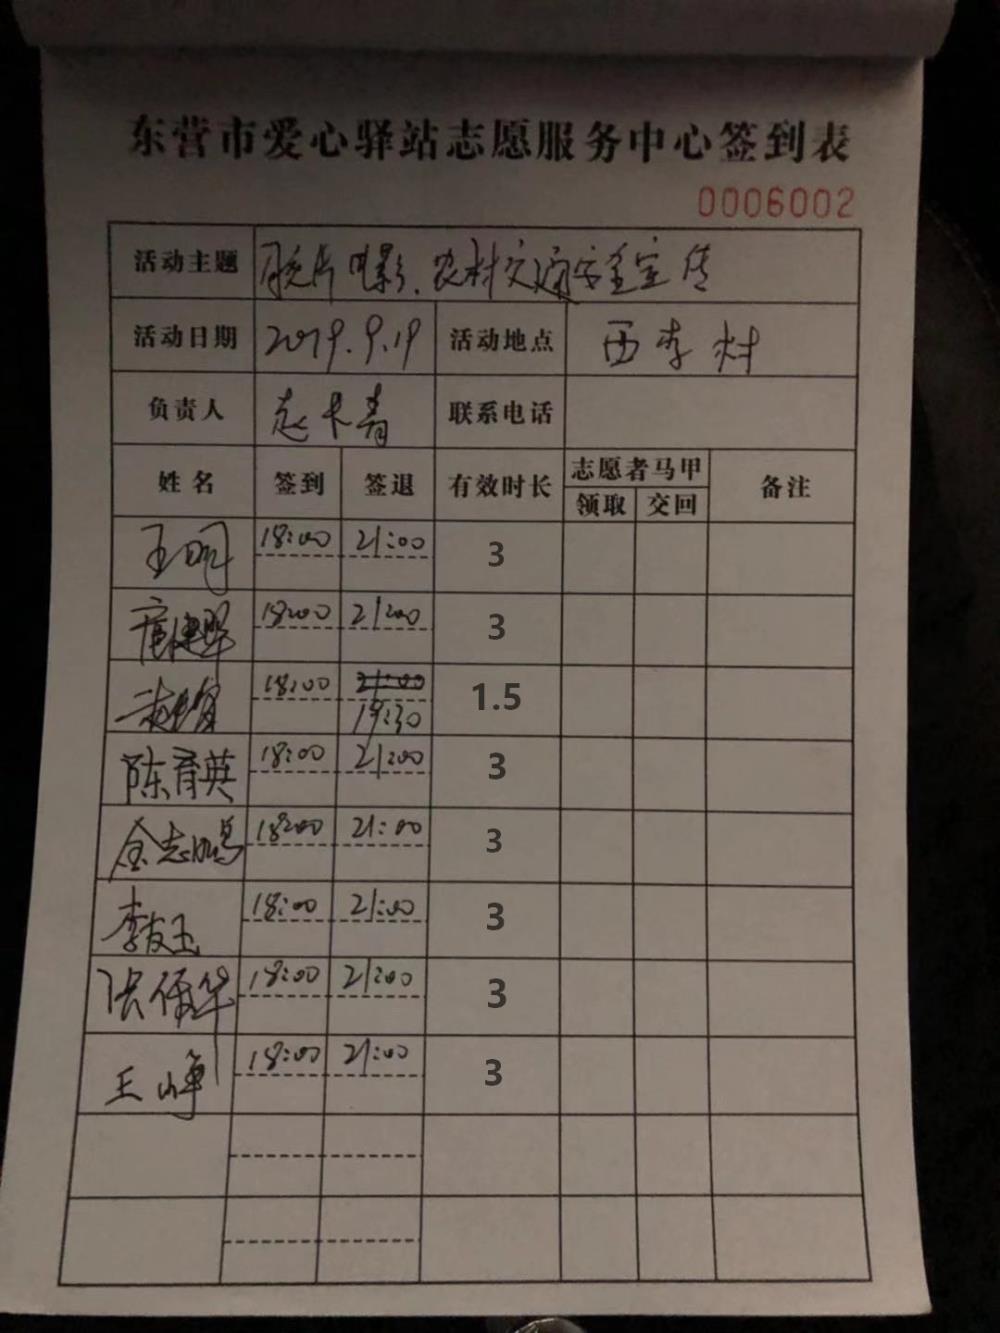 东营市爱心驿站志愿服务中心签到表
0006002
活动主题 胶片电影、农村交通安全宣传
活动日期 2019.9.19 活动地点 西李村
负责人 赵长青 联系电话
姓名 签到 签退 有效时长 志愿者马甲 备注
领取 交回
王明 18:00 21:00 3
18:00 21:00 3
18:00 21:00 1.5
19:30
陈育英 18:00 21:00 3
金志鹏 18:00 21:00 3
李友玉 18:00 21:00 3
18:00 21:00 3
王峥 18:00 21:00 3